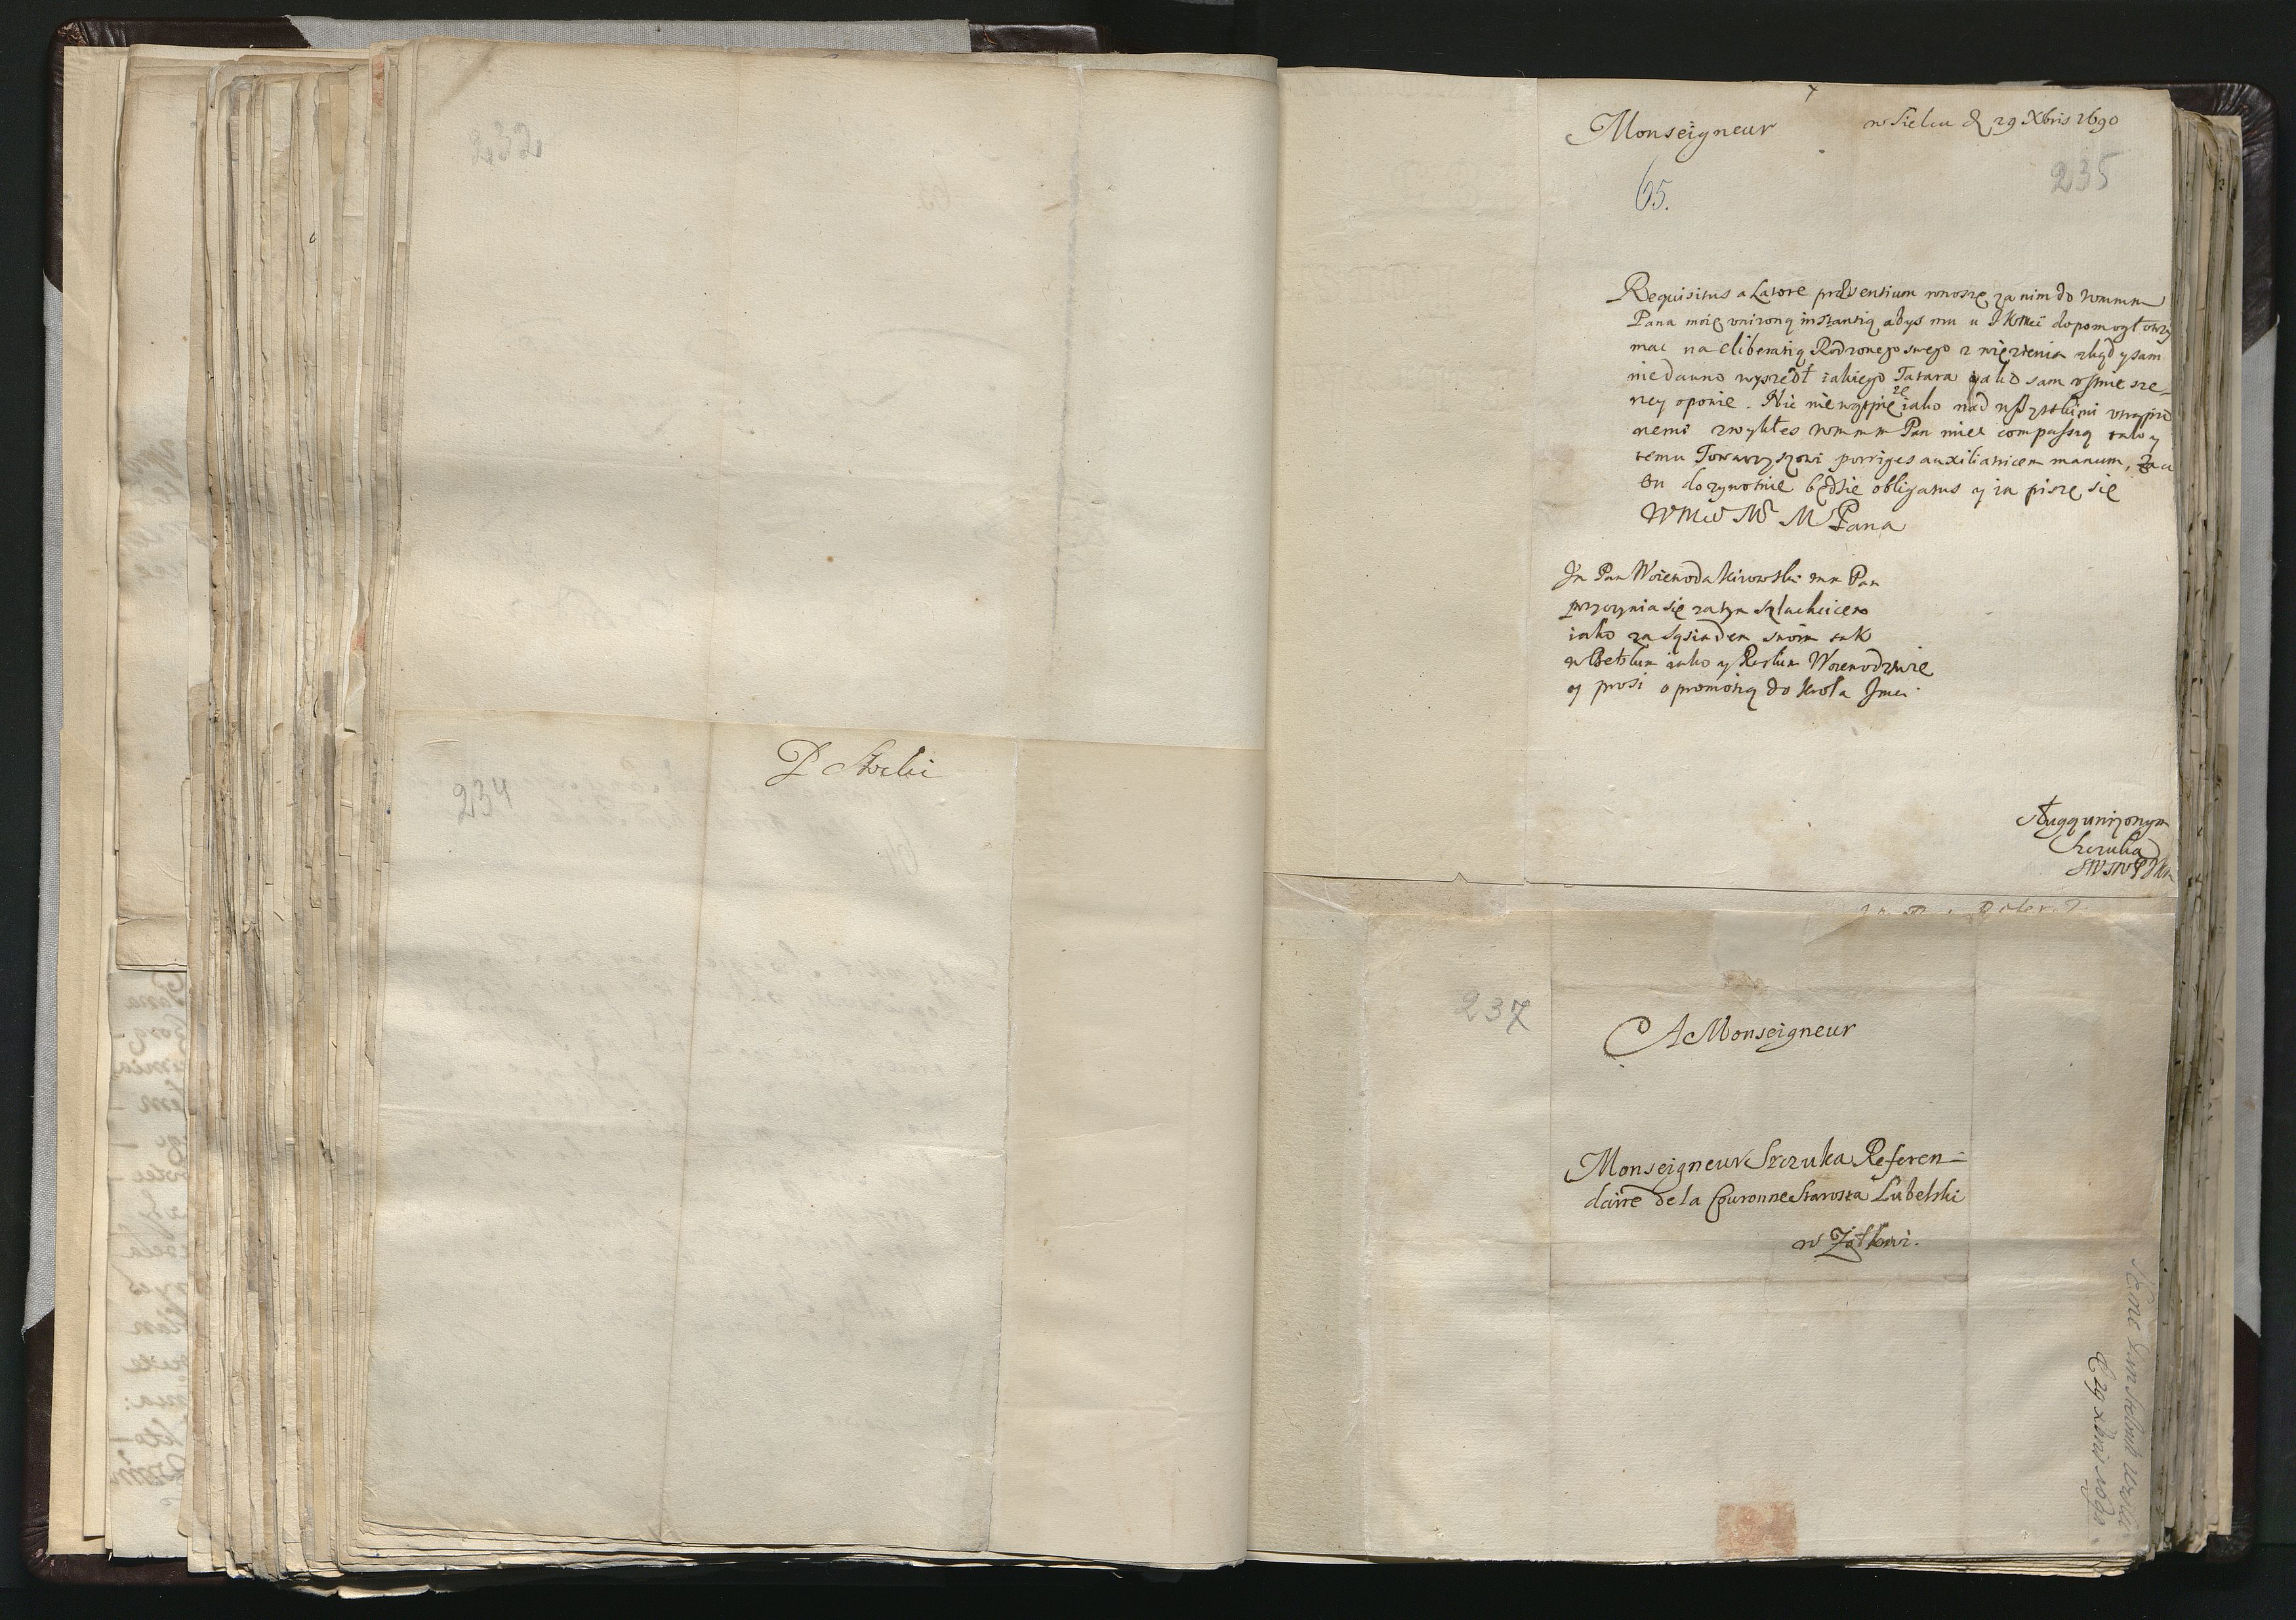 232
234
P Stecki
Monseigneur
w Sielcu d 29 Xbris 1690
65.
235
Requisitus a Latore præsentium wnoszę za nim do wmmm
Pana moię unizoną instantią abys mu u J KMci dopomogł otrzy
mac na eliberatią Rodzonego swego z więzienia zkąd y sam
niedawno wyszedł iakiego Tatara iako sam ustnie sze-
rzey opowie. Nic nie wątpię ze iako nad wszystkimi utrapio
nemi zwykłes wmmm Pan miec compassią tak y
temu Towarzyszowi porriges auxiliatricem manum, za co
on dozywotnie będzie obligatus y ia piszę się
WMci Mo M Pana
Jm Pan Woiewoda Kiiowski mm Pan
przyczynia się za tym szlachcicem
iako za sąsiadem swoim tak
w Bełskim iako y Ruskim Woiewodztwie
y prosi o promotią do Krola Jmci.
sługą unizonym
Szczuka
237
A Monseigneur
Monseigneur Szczuka Referen=
daire de la Couronne Starosta Lubelski
w Zołkwi.
d 29 Xbris 1690